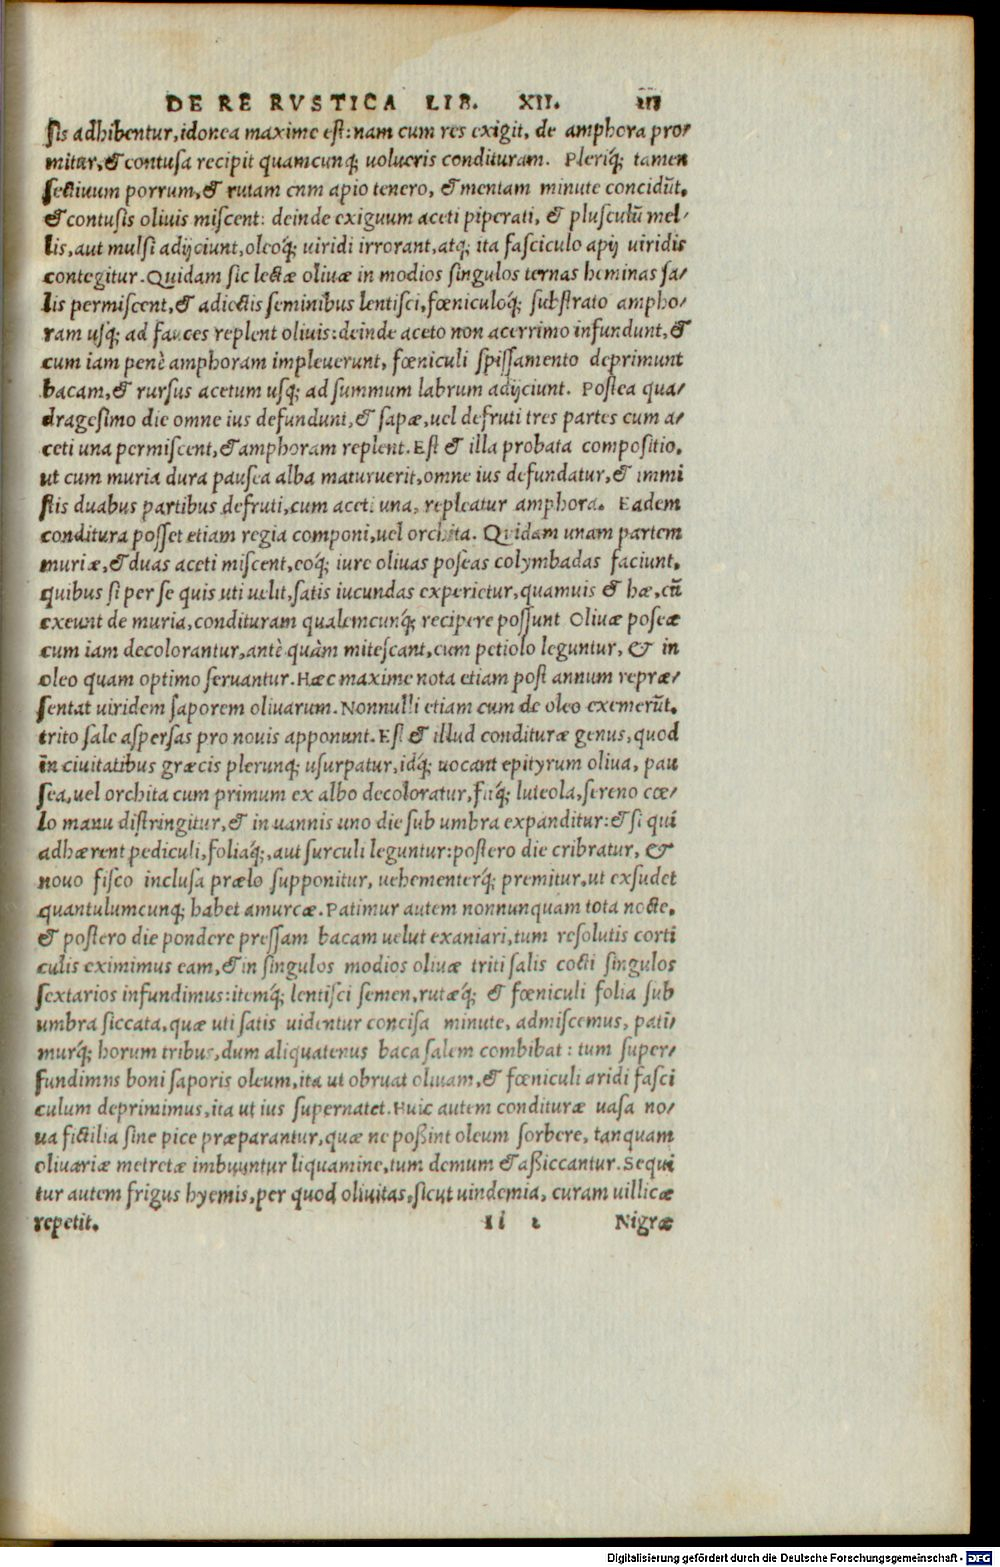 DE RE RVSTICA LIB. XII.
sis adhibentur, idonea maxime est: nam cum res exigit, de amphora pro/
mitur, & contusa recipit quamcunq; uolueris condituram. Pleriq́; tamen
sectiuum porrum, & rutam cnm apio tenero, & mentam minute concidūt,
& contusis oliuis miscent: deinde exiguum aceti piperati, & plusculū mel/
lis, aut mulsi adijciunt, oleoq́; uiridi irrorant, atq; ita fasciculo apij uiridis
contegitur. Quidam sic lectæ oliuæ in modios singulos ternas heminas sa/
lis permiscent, & adiectis seminibus lentisci, fœniculoq́; substrato ampho/
ram usq; ad fauces replent oliuis: deinde aceto non acerrimo infundunt, &
cum iam penè amphoram impleuerunt, fœniculi spissamento deprimunt
bacam, & rursus acetum usq; ad summum labrum adijciunt. Postea qua/
dragesimo die omne ius defundunt, & sapæ, uel defruti tres partes cum a/
ceti una permiscent, & amphoram replent. Est & illa probata compositio,
ut cum muria dura pausea alba maturuerit, omne ius defundatur, & immi
stis duabus partibus defruti, cum aceti una, repleatur amphora. Eadem
conditura posset etiam regia componi, uel orchita. Quidam unam partem
muriæ, & duas aceti miscent, eoq́; iure oliuas poseas colymbadas faciunt,
quibus si per se quis uti uelit, satis iucundas experietur, quamuis & hæ, cū
exeunt de muria, condituram qualemcunq́; recipere possunt Oliuæ poseæ
cum iam decolorantur, antè quàm mitescant, cum petiolo leguntur, & in
oleo quam optimo seruantur. Hæc maxime nota etiam post annum repræ/
sentat uiridem saporem oliuarum. Nonnulli etiam cum de oleo exemerūt,
trito sale aspersas pro nouis apponunt. Est & illud condituræ genus, quod
in ciuitatibus græcis plerunq; usurpatur, idq́; uocant epityrum oliua, pau
sea, uel orchita cum primum ex albo decoloratur, fitq́; luteola, sereno cœ/
lo manu distringitur, & in uannis uno die sub umbra expanditur: & si qui
adhærent pediculi, foliaq́;, aut surculi leguntur: postero die cribratur, &
nouo fisco inclusa prælo supponitur, uehementerq́; premitur, ut exsudet
quantulumcunq; habet amurcæ. Patimur autem nonnunquam tota nocte,
& postero die pondere pressam bacam uelut exaniari, tum resolutis corti
culis eximimus eam, & in singulos modios oliuæ triti salis cocti singulos
sextarios infundimus: itemq́; lentisci semen, rutæq́; & fœniculi folia sub
umbra siccata, quæ uti satis uidentur concisa minute, admiscemus, pati/
murq́; horum tribus, dum aliquatenus baca salem combibat: tum super/
fundimns boni saporis oleum, ita ut obruat oliuam, & fœniculi aridi fasci
culum deprimimus, ita ut ius supernatet. Huic autem condituræ uasa no/
ua fictilia sine pice præparantur, quæ ne poßint oleum sorbere, tanquam
oliuariæ metretæ imbuuntur liquamine, tum demum & aßiccantur. Sequi
tur autem frigus hyemis, per quod oliuitas, sicut uindemia, curam uillicæ
repetit. Nigræ
Digitalisierung gefördert durch die Deutsche Forschungsgemeinschaft - DFG